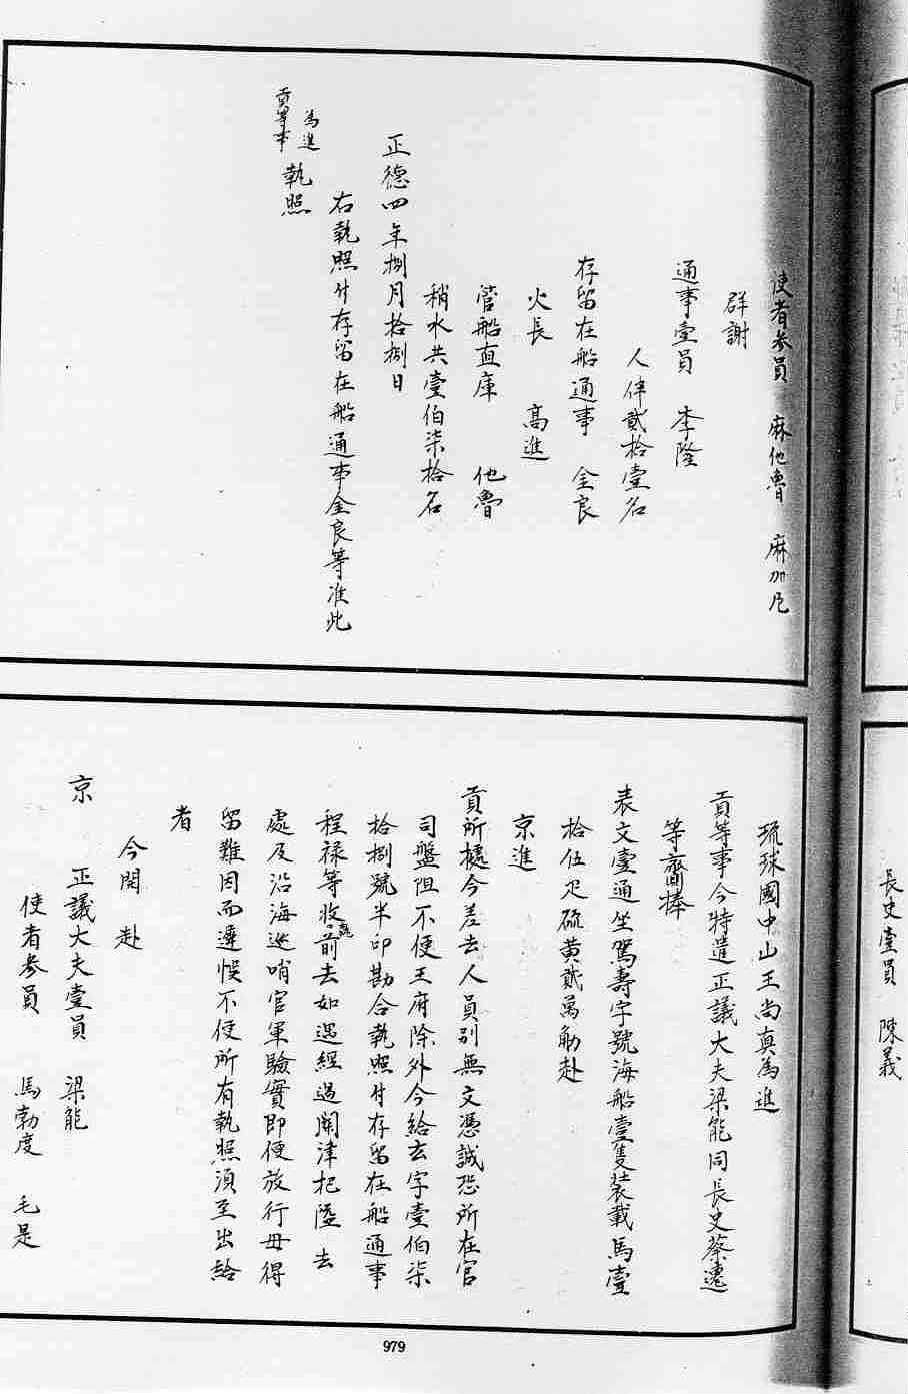 使者參員　麻他魯　麻加尼
群謝
通事壹員　李隆
人伴貳拾壹名
存留在船通事　金良
火長　高進
管船直庫　他魯
稍水共壹伯柒拾名
正德四年捌月拾捌日
右執照付存留在船通事金良等准此
為進
貢等事
執照
長史壹員　陳義
琉球國中山王尚真為進
貢等事今特遣正議大夫梁能同長史蔡遷
等齎捧
表文壹通坐駕壽字號海船壹隻裝載馬壹
拾伍疋硫黄貳萬觔赴
京進
貢所據今差去人員別無文憑誠恐所在官
司盤阻不便王府除外今給玄字壹伯柒
拾捌號半印勘合執照付存留在船通事
程禄等收執前去如遇經過關津把隘去
處及沿海巡哨官軍驗實即便放行毋得
留難因而遲悞不便所有執照須至出給
者
今開赴
京　正議大夫壹員　梁能
使者參員　馬勃度　毛是
979